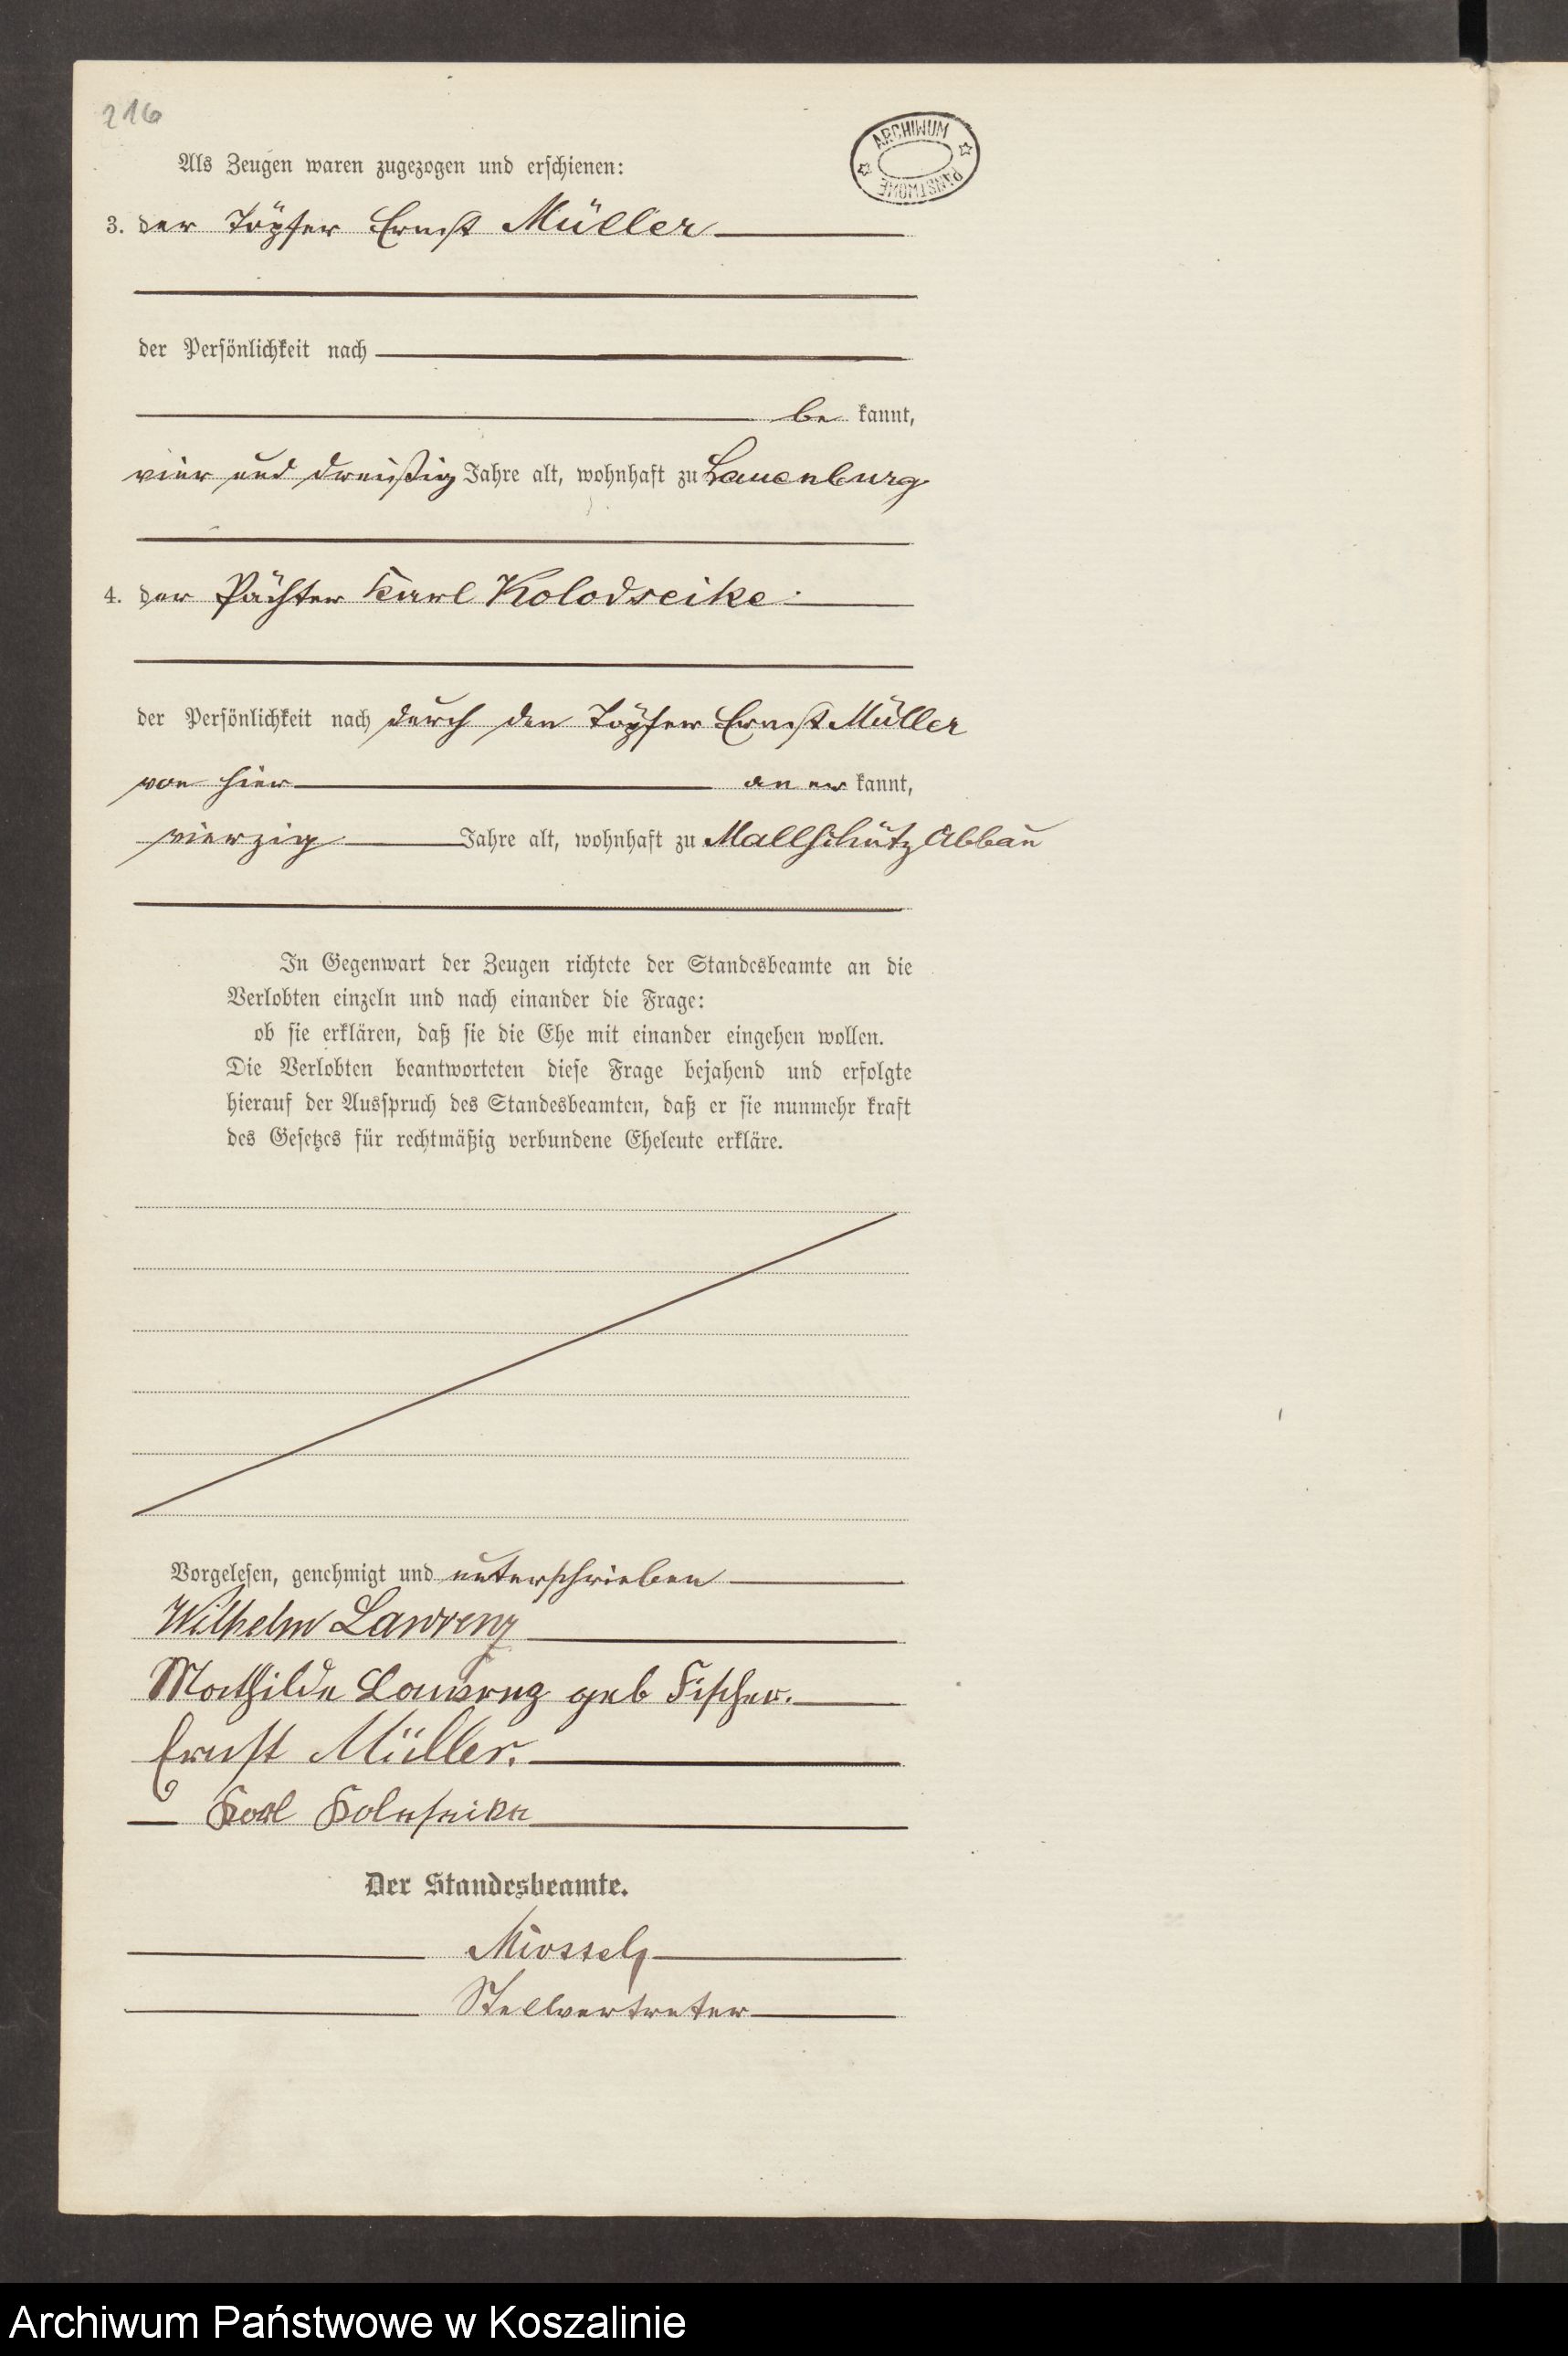 216
ARCHIWUM PAŃSTWOWE
Als Zeugen waren zugezogen und erschienen:
3. der Töpfer Ernst Müller
der Persönlichkeit nach
be kannt,
vier und dreißig Jahre alt, wohnhaft zu Lauenburg
4. der Pächter Karl Kolodseike
der Persönlichkeit nach durch den Töpfer Ernst Müller
von hier an er kannt,
vierzig Jahre alt, wohnhaft zu Mallschütz Abbau
In Gegenwart der Zeugen richtete der Standesbeamte an die
Verlobten einzeln und nach einander die Frage:
ob sie erklären, daß sie die Ehe mit einander eingehen wollen.
Die Verlobten beantworteten diese Frage bejahend und erfolgte
hierauf der Ausspruch des Standesbeamten, daß er sie nunmehr kraft
des Gesetzes für rechtmäßig verbundene Eheleute erkläre.
Vorgelesen, genehmigt und unterschrieben
Wilhelm Lawrenz
Mathilde Lawrenz geb Fischer.
Ernst Müller.
Karl
Der Standesbeamte.
Stellvertreter
Archiwum Państwowe w Koszalinie